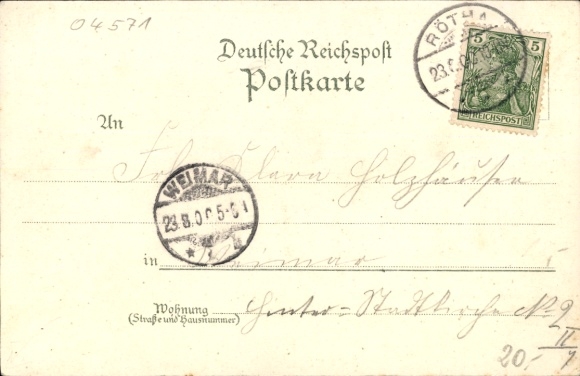 04571
Deutsche Reichspost
Postkarte
RÖTHA
23.8.0
5 5
REICHSPOST
An
Frl. Klara Holzhäuser
WEIMAR
23.8.00 5-6
in Weimar
Wohnung Hinter-Stadtkirche No 9
(Straße und Hausnummer)
II
20.-